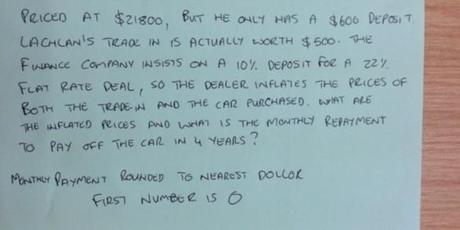 PRICED AT $21800, BUT HE ONLY HAS A $600 DEPOSIT
LACHLAN'S TRADE IN IS ACTUALLY WORTH $500. THE
FINANCE COMPANY INSISTS ON A 10% DEPOSIT FOR A 22%
FLAT RATE DEAL, SO THE DEALER INFLATES THE PRICES OF
BOTH THE TRADE-IN AND THE CAR PURCHASED. WHAT ARE
THE INFLATED PRICES AND WHAT IS THE MONTHLY REPAYMENT
TO PAY OFF THE CAR IN 4 YEARS?
MONTHLY PAYMENT ROUNDED TO NEAREST DOLLOR
FIRST NUMBER IS 0